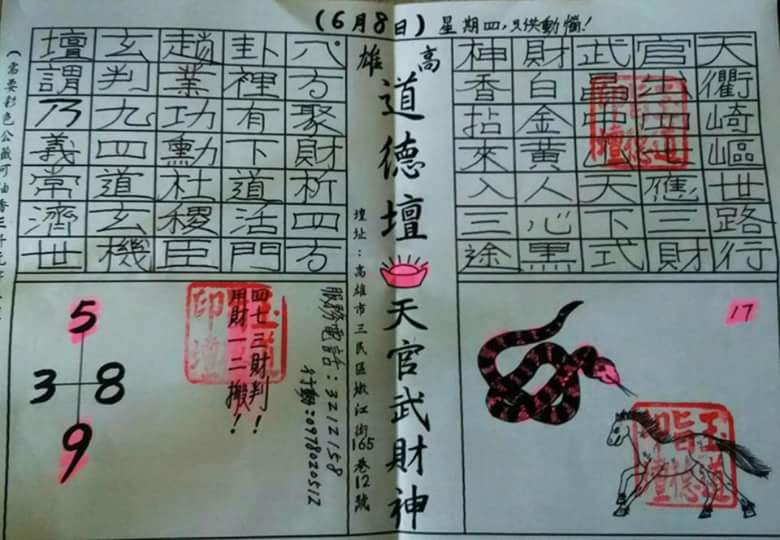 (6月8日) 星期四,只供動惱!
天衢崎嶇世路行
官四應三財
武中天下式
財白金黃人心黑
神香拈來入三途
17
高雄
道德壇 天官武財神
壇址:高雄市三民區江街165巷12號
八方聚財析四方
卦裡有下道活門
趙業功勳杜稷臣
玄判九四道玄機
壇謂乃義常濟世
服務電話:3212158
行動:0978020512
四七三財判!
用財一二搬!
5
3 8
9
(需要彩色公籤可油香三千元